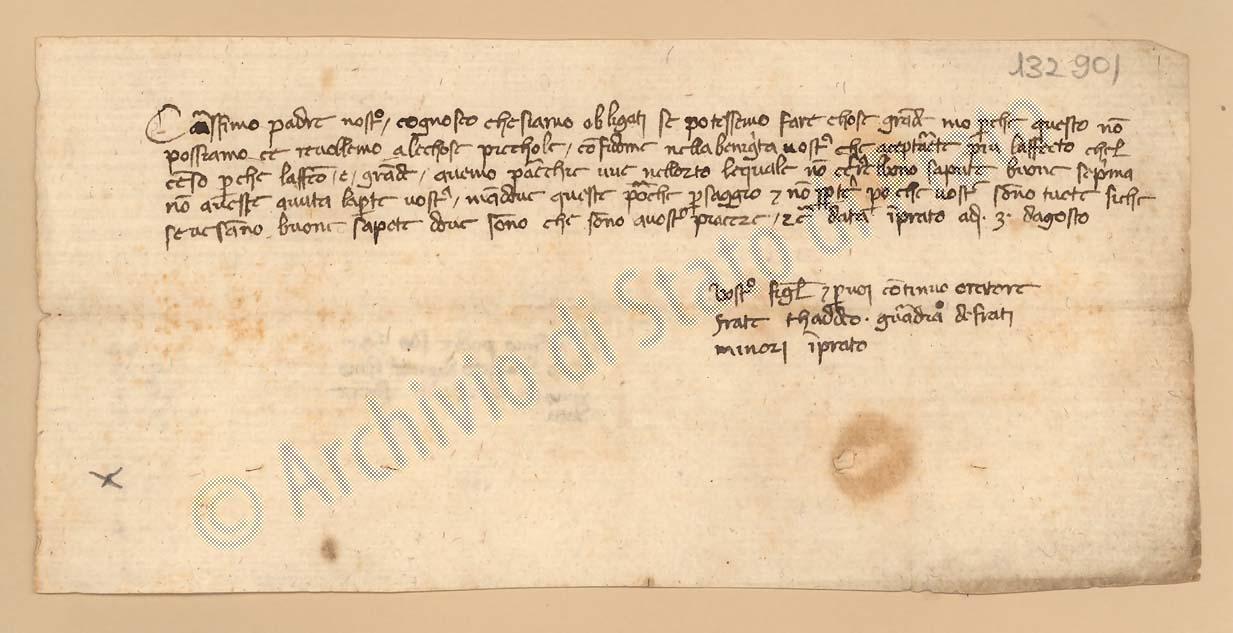 132 901
Carissimo padre nostro / cognosco che siamo obligati se potessemo fare chose grandi mo perche questo non
possiamo ce revollemo a le chose picchole / confidome nella benignita vostra che aceptarete piu laffecto chel
censo perche laffecto / e / grande / avemo parecchie uve nellorto lequale non buono sapute buone se prima
non avesse avuta la parte vostra / mandove queste poche per saggio e non per po che vostre sonno tucte siche
se ve sanno buone sapete dove sonno che sonno a vostro piacere / data in prato adi 3 dagosto
Vostro figlo e per voi continuo oratore
frate thaddeo guardiano de frati
minori in prato
© Archivio di Stato di